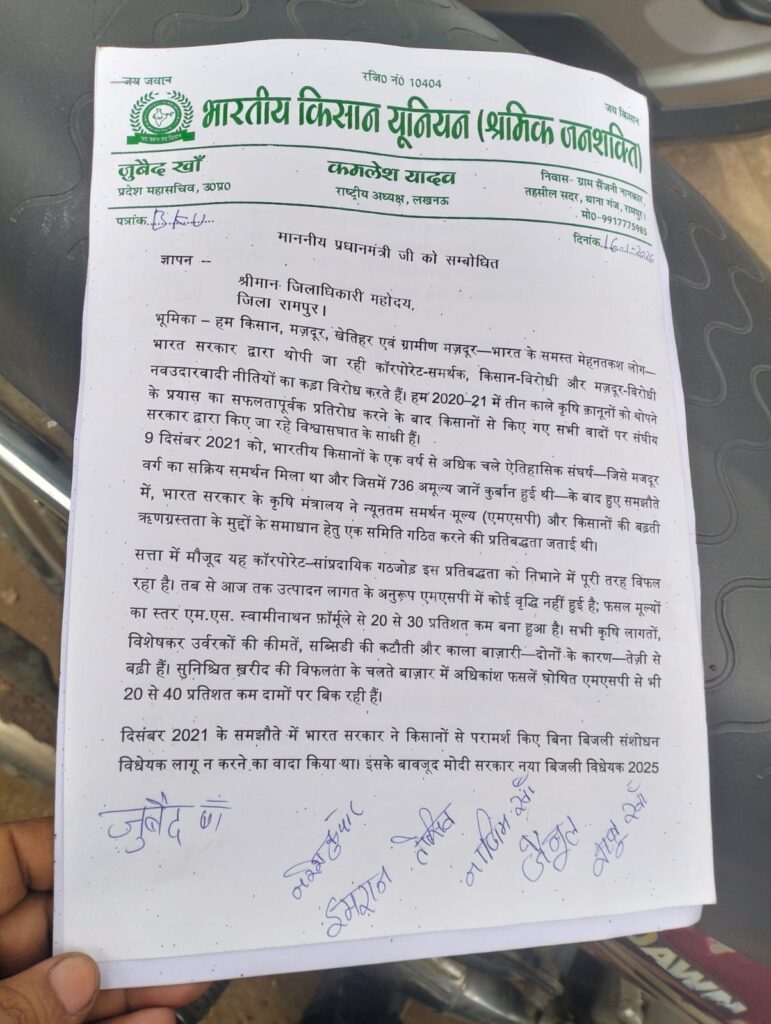 जय जवान
रजि0 नं0 10404
जय किसान
भारतीय किसान यूनियन (श्रमिक जनशक्ति)
जुबैद खाँ
प्रदेश महासचिव, उ0प्र0
कमलेश यादव
राष्ट्रीय अध्यक्ष, लखनऊ
निवास- ग्राम सैंजनी नानकार,
तहसील सदर, थाना गंज, रामपुर।
मो0-9917775985
पत्रांक. BKU
दिनांक. 16-1-2026
माननीय प्रधानमंत्री जी को सम्बोधित
ज्ञापन --
श्रीमान जिलाधिकारी महोदय,
जिला रामपुर।
भूमिका – हम किसान, मज़दूर, खेतिहर एवं ग्रामीण मज़दूर—भारत के समस्त मेहनतकश लोग—
भारत सरकार द्वारा थोपी जा रही कॉरपोरेट-समर्थक, किसान-विरोधी और मज़दूर-विरोधी
नवउदारवादी नीतियों का कड़ा विरोध करते हैं। हम 2020-21 में तीन काले कृषि क़ानूनों को थोपने
के प्रयास का सफलतापूर्वक प्रतिरोध करने के बाद किसानों से किए गए सभी वादों पर संघीय
सरकार द्वारा किए जा रहे विश्वासघात के साक्षी हैं।
9 दिसंबर 2021 को, भारतीय किसानों के एक वर्ष से अधिक चले ऐतिहासिक संघर्ष—जिसे मजदूर
वर्ग का सक्रिय समर्थन मिला था और जिसमें 736 अमूल्य जानें कुर्बान हुई थी—के बाद हुए समझौते
में, भारत सरकार के कृषि मंत्रालय ने न्यूनतम समर्थन मूल्य (एमएसपी) और किसानों की बढ़ती
ऋणग्रस्तता के मुद्दों के समाधान हेतु एक समिति गठित करने की प्रतिबद्धता जताई थी।
सत्ता में मौजूद यह कॉरपोरेट–सांप्रदायिक गठजोड़ इस प्रतिबद्धता को निभाने में पूरी तरह विफल
रहा है। तब से आज तक उत्पादन लागत के अनुरूप एमएसपी में कोई वृद्धि नहीं हुई है; फसल मूल्यों
का स्तर एम.एस. स्वामीनाथन फ़ॉर्मूले से 20 से 30 प्रतिशत कम बना हुआ है। सभी कृषि लागतों,
विशेषकर उर्वरकों की कीमतें, सब्सिडी की कटौती और काला बाज़ारी—दोनों के कारण—तेज़ी से
बढ़ी हैं। सुनिश्चित ख़रीद की विफलता के चलते बाज़ार में अधिकांश फसलें घोषित एमएसपी से भी
20 से 40 प्रतिशत कम दामों पर बिक रही हैं।
दिसंबर 2021 के समझौते में भारत सरकार ने किसानों से परामर्श किए बिना बिजली संशोधन
विधेयक लागू न करने का वादा किया था। इसके बावजूद मोदी सरकार नया बिजली विधेयक 2025
जुबैद खाँ
नरेश कुमार
इमरान
नाजिम खाँ
जैनुल
DAWN